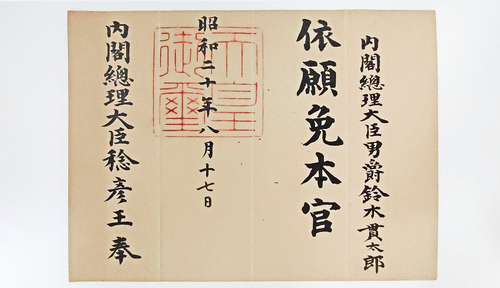 內閣總理大臣男爵鈴木貫太郎
依願免本官
昭和二十年八月十七日
天皇御璽
內閣總理大臣稔彥王奉